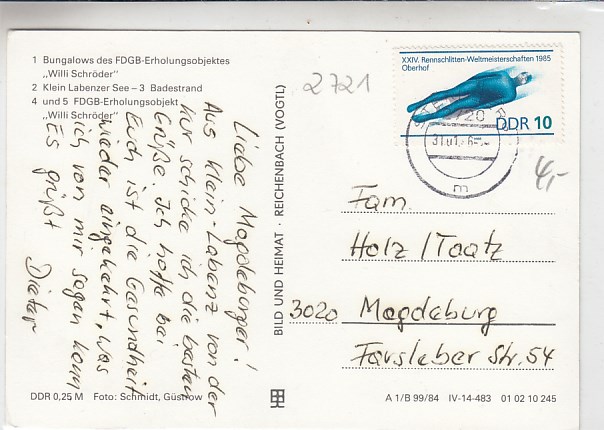 1 Bungalows des FDGB-Erholungsobjektes
„Willi Schröder"
2 Klein Labenzer See – 3 Badestrand
4 und 5 FDGB-Erholungsobjekt
„Willi Schröder"
Liebe Magdeburger!
Aus Klein-Labenz von der
Kur schicke ich die besten
Grüße. Ich hoffe bei
Euch ist die Gesundheit
wieder eingekehrt, was
ich von mir sagen kann
Es grüßt
Dieter
DDR 0,25 M Foto: Schmidt, Güstrow
BILD UND HEIMAT · REICHENBACH (VOGTL)
2721
XXIV. Rennschlitten-Weltmeisterschaften 1985
Oberhof
DDR 10
4,-
Fam.
Holz/Taatz
3020 Magdeburg
Farsleber Str. 54
A 1/B 99/84 IV-14-483 01 02 10 245